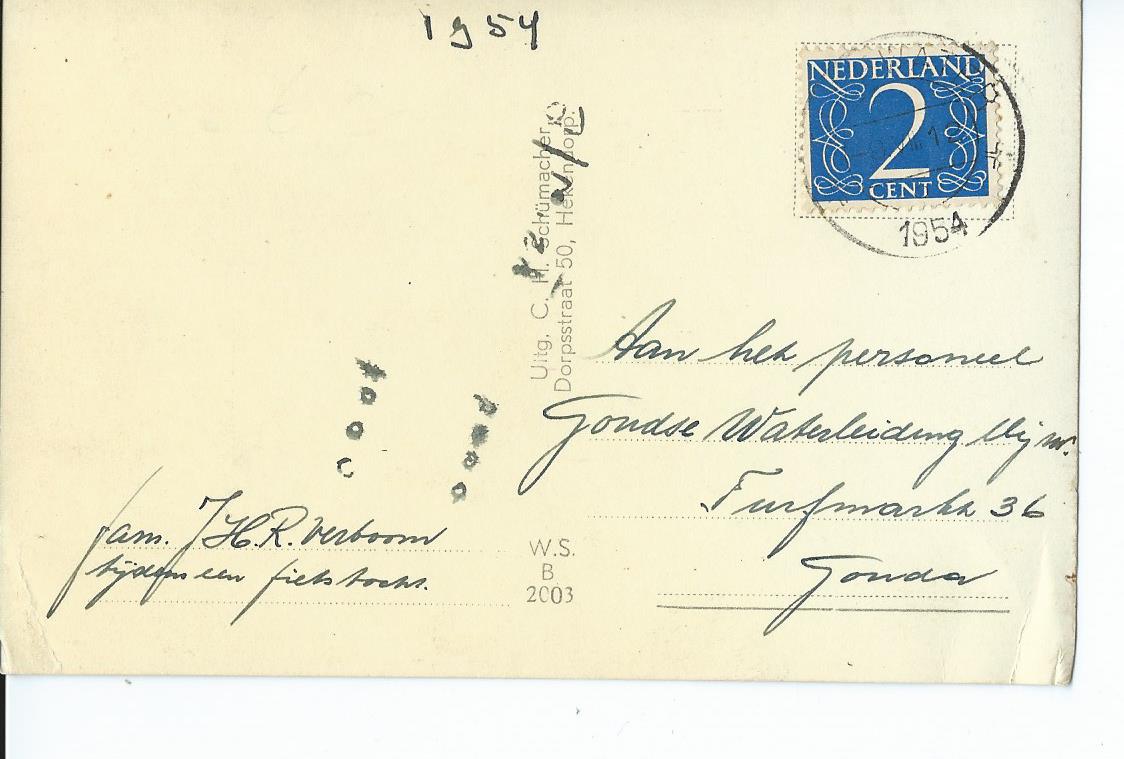 1954
NEDERLAND
2
CENT
1954
Uitg. C. H. Schümacher,
Dorpsstraat 50,
Aan het personeel
Goudse Waterleiding Mij nv.
Turfmarkt 36
Gouda
fam. J.H.R. Verboom
tijdens een fietstocht.
W.S.
B
2003